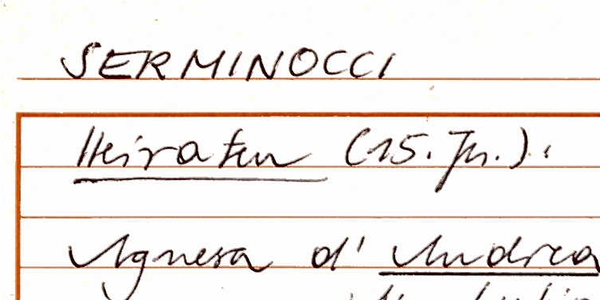 SERMINOCCI
Heiraten (15. Jh.):
Agnesa d' Andrea